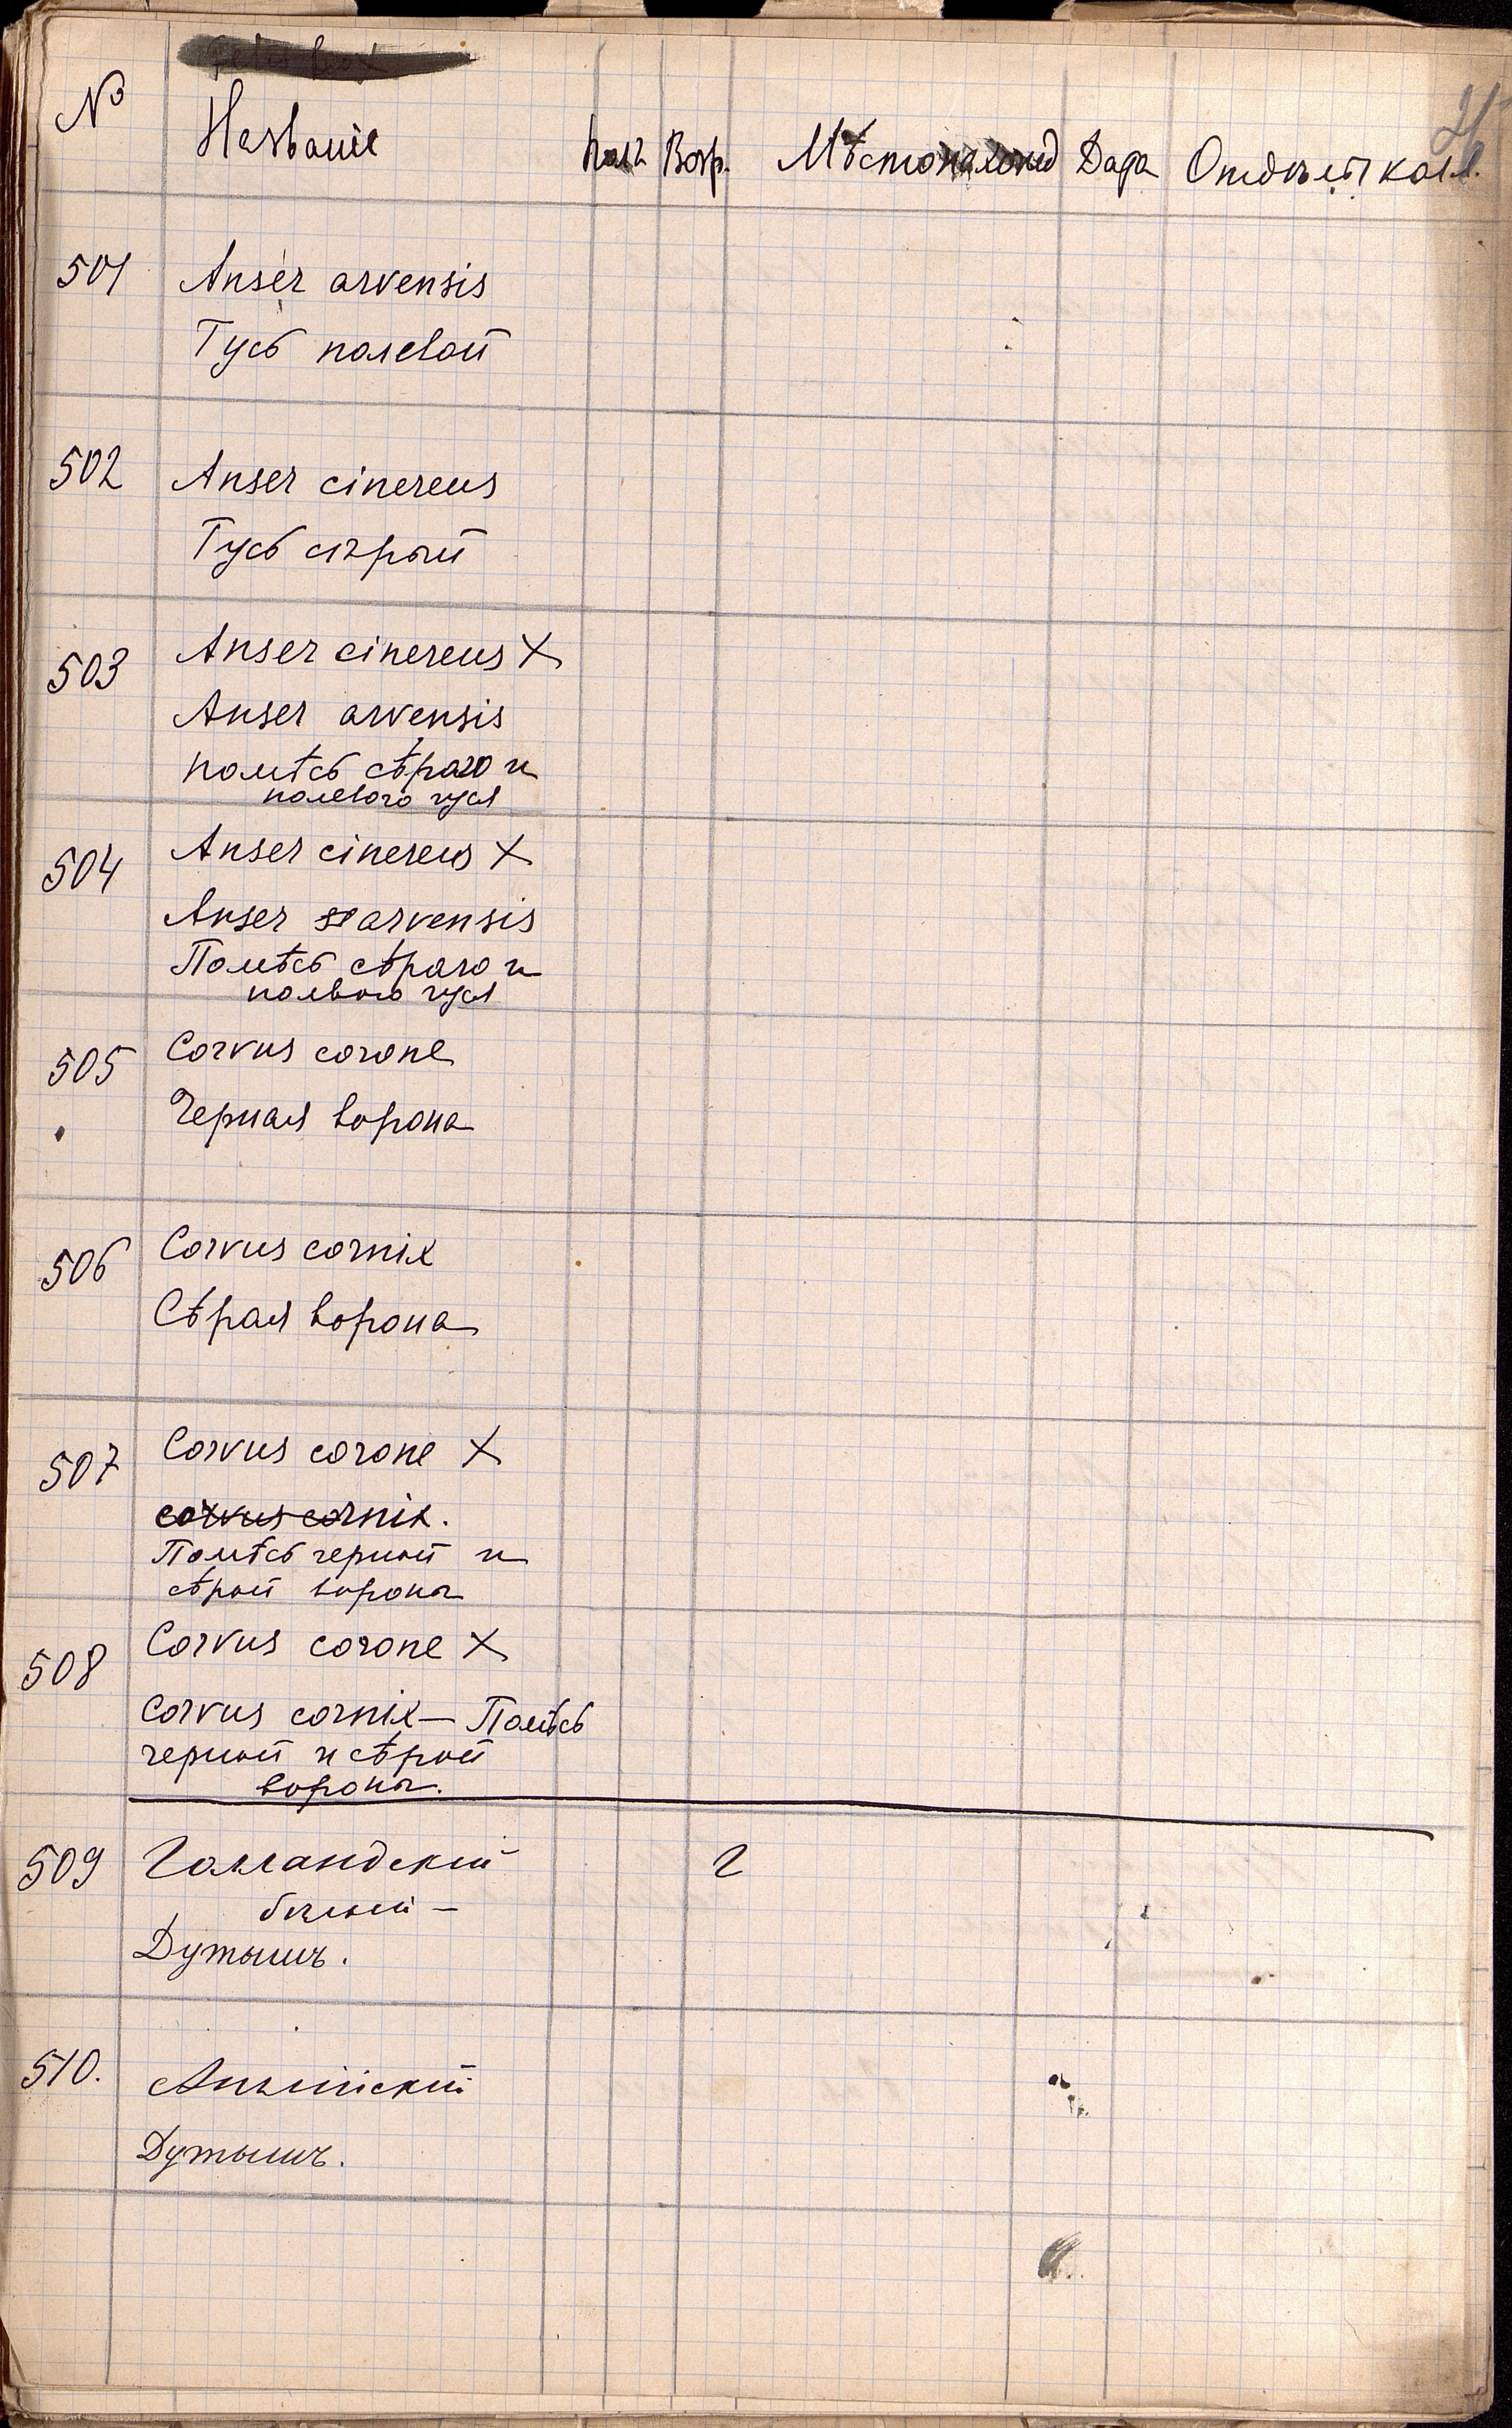 № Названіе Полъ Возр. Мѣстонахожд Дара Отдѣлъ колл.
501 Anser arvensis
Гусь полевой
502 Anser cinereus
Гусь сѣрый
Anser cinereus ×
503
Anser arvensis
помѣсь сѣраго и
полевого гуся
Anser cinereus ×
504
Anser arvensis
Помѣсь сѣраго и
полевого гуся
Corvus corone
505
Черная ворона
Corvus cornix
506
Сѣрая ворона
Corvus corone ×
507
corvus cornix.
Помѣсь черной и
сѣрой вороны
Corvus corone ×
508
Corvus cornix — Помѣсь
черной и сѣрой
вороны.
509 Голландскій
бѣлый —
Дутышъ.
510. Англійскій
Дутышъ.